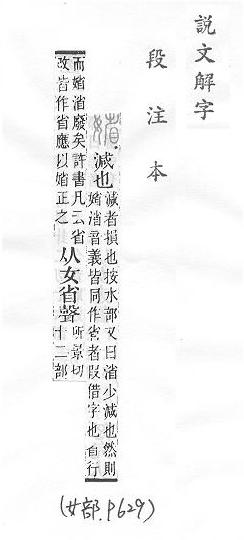 說文解字
段注本
婧
減也減者損也按水部又曰渻少減也然則
婧渻音義皆同作省者叚借字也省行
而婧渻廢矣許書凡云省
改皆作省應以婧正之
从女省聲所景切
十一部
(女部.P629)